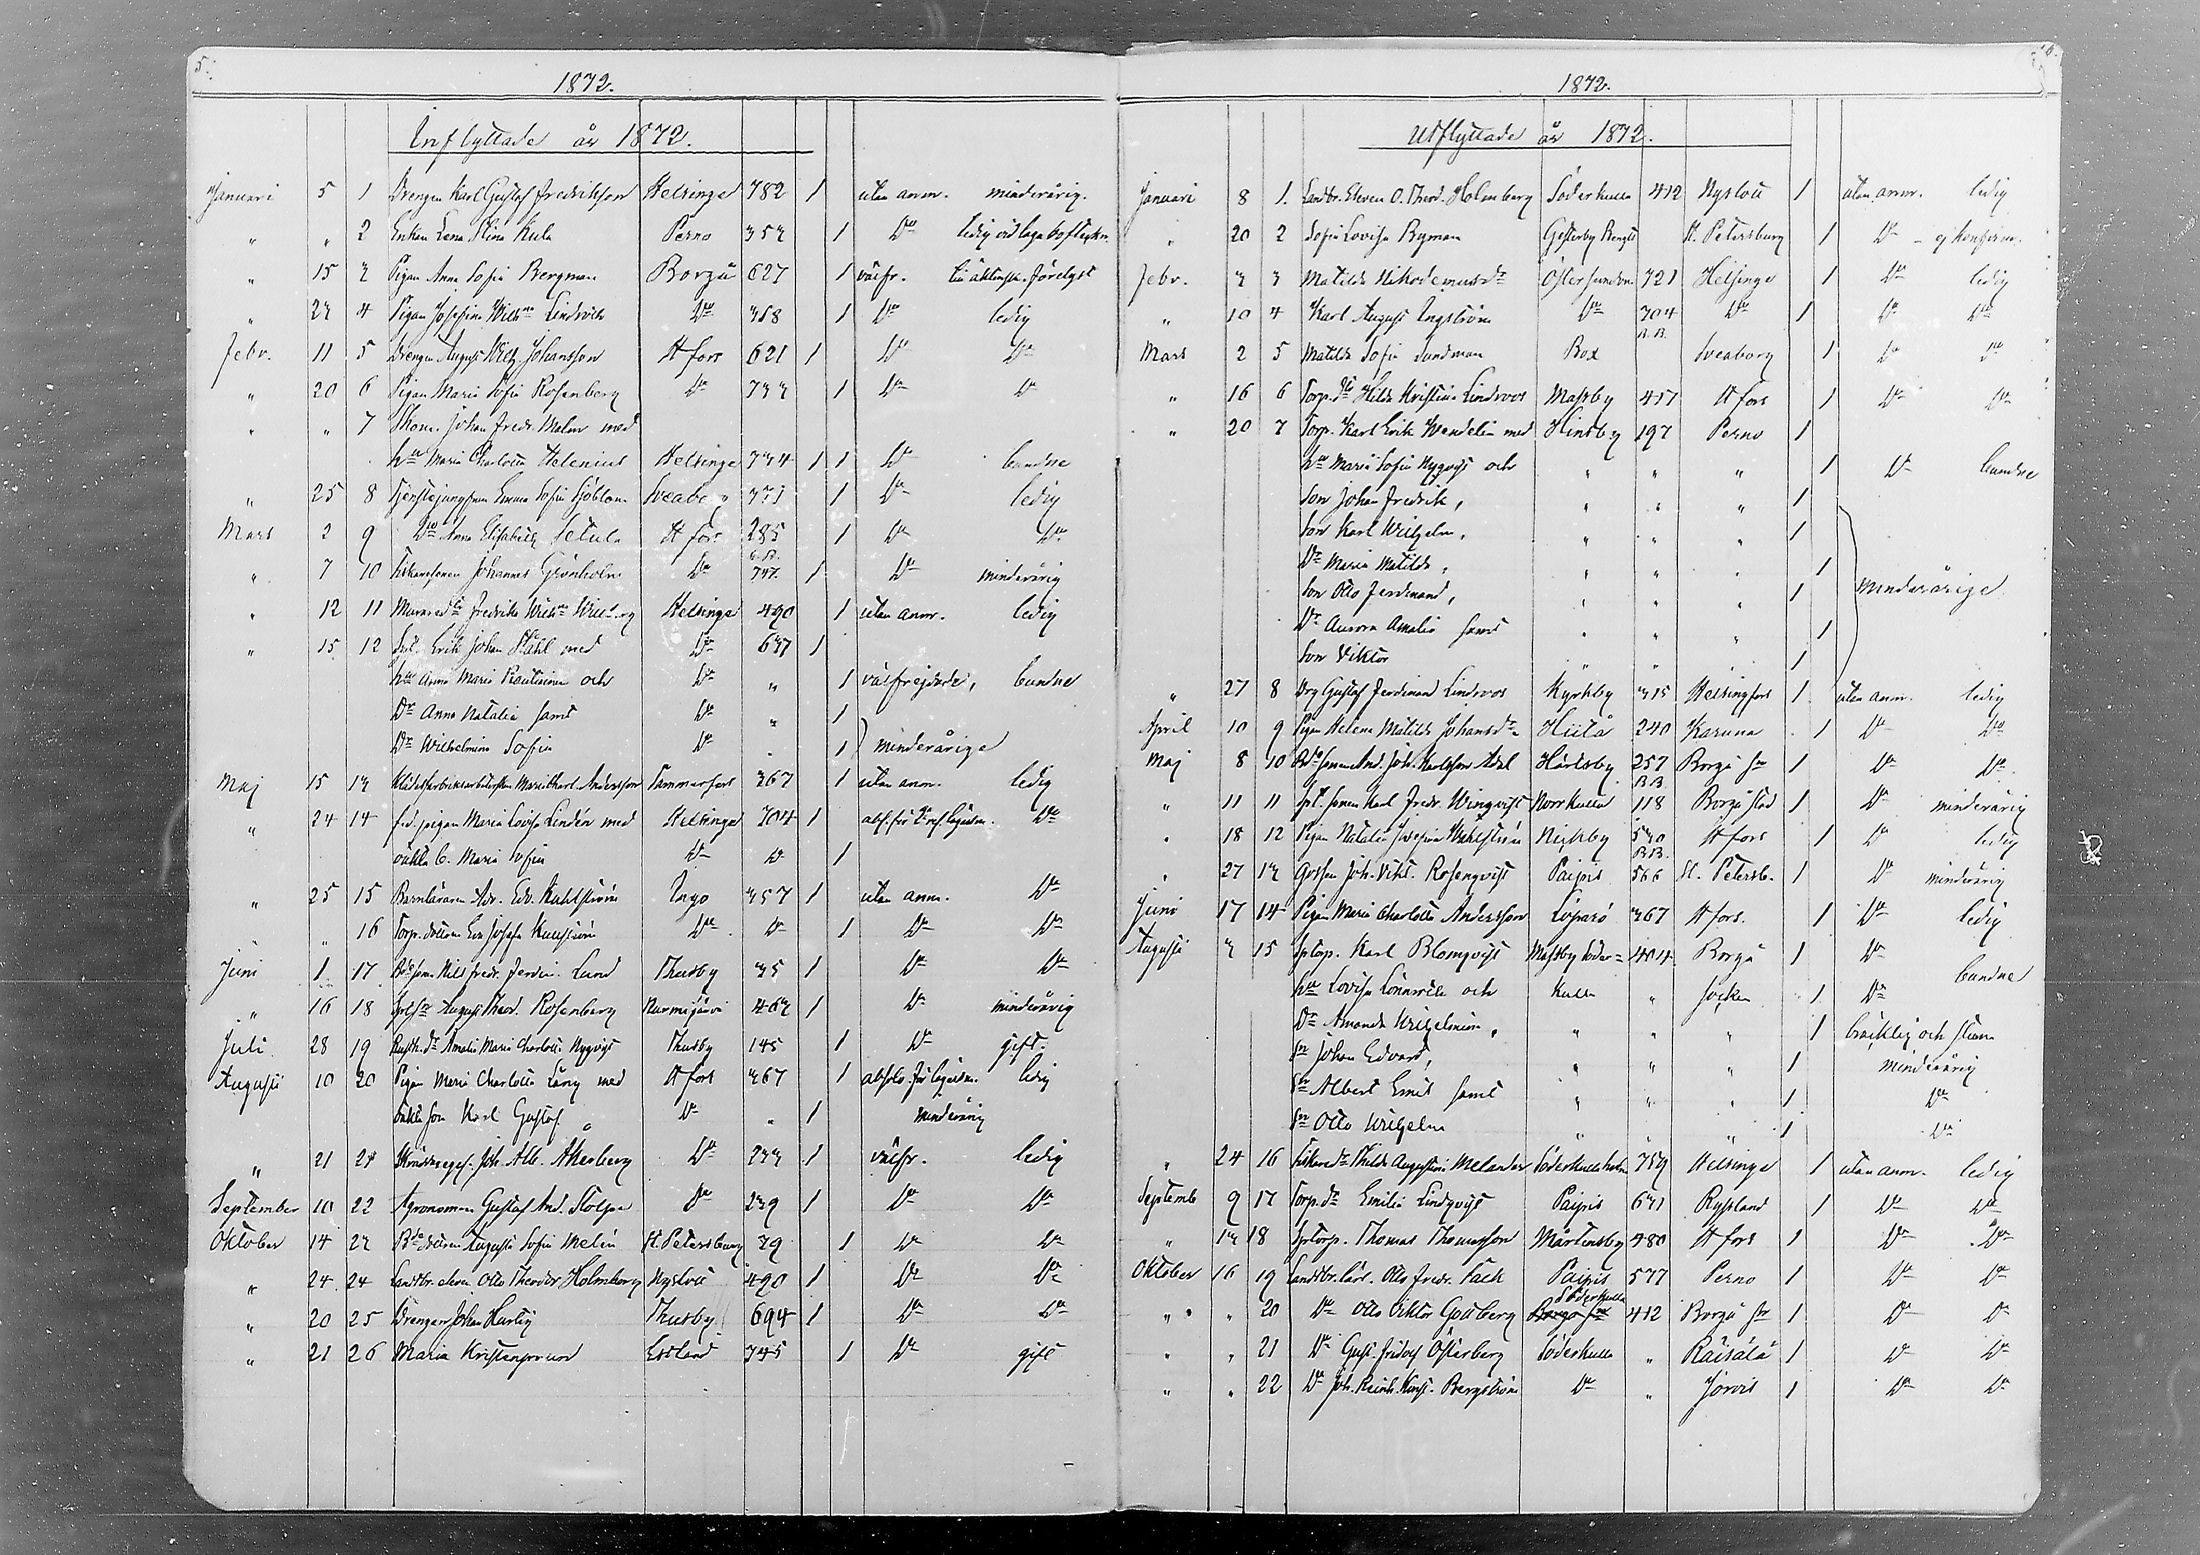 5.
1872.
Inflyttade år 1872.
Januari 5 1 Drengen Karl Gustaf Fredrikson Helsinge 782 1 utan anm. minderårig.
" " 2 Enkan Lena Stina Kula Perno 353 1 Do ledig vid laga
" 15 3 Pigan Anna Sofia Bergman Borgå 627 1 välfr.
" 23 4 Pigan Josefina Wilhna Lindvik Do 368 1 Do ledig
Febr. 11 5 Drengen August Wilh. Johansson H fors 621 1 Do Do
" 20 6 Pigan Maria Sofia Rosenberg Do 733 1 Do Do
" " 7 Skom. Johan Fredr. Malm med
hu Maria Charlotta Helenius Helsinge 734 1 1 Do bundne
" 25 8 Tjenstejungfrun Emma Sofia Sjöblom Sveaborg 371 1 Do ledig
Mars 2 9 Do Anna Elisabeth Setula H fors 285 1 Do Do
" 7 10 Fiskaresonen Johannes Grönholm Do 747 1 Do minderårig
" 12 11 Murared. Fredrika Wilhna Helsinge 490 1 utan anm. ledig
" 15 12 Erik Johan Ståhl med Do 637 1
hu Anna Maria Rautiainen och Do " 1 välfrejdade, bundne
Dr Anna Natalia samt Do " 1
Dr Wilhelmina Sofia Do " 1 minderårige
Maj 15 13 Klädesfabriksarbeterskan Maria Charl. Andersson Tammerfors 367 1 utan anm. ledig
" 24 14 f.d. pigan Maria Lovisa Lindén med Helsinge 704 1 Do
oäkta b. Maria Sofia Do Do 1
" 25 15 Barnläraren Adr. Edv. Kuhlström Ingo 357 1 utan anm. Do
" 16 Torp. dottern Eva Josefa Kuhlström Do Do 1 Do Do
Juni 1 17 Bdesonen Nils Fredr. Ferdin. Lund Thusby 35 1 Do Do
" 16 18 August Theod. Rosenberg Nurmijärvi 463 1 Do minderårig
Juli 28 19 Rusth. dr Amalia Maria Charlotta Nyqvist Thusby 145 1 Do gift.
Augusti 10 20 Pigan Maria Charlotta Läng med H fors 367 1 ledig
oäkta son Karl Gustaf Do " 1 minderårig
" 21 21 Skräddaregес. Joh. Alb. Åkerberg Do 233 1 välfr. ledig
September 10 22 Agronomen Gustaf And. Stolpe Do 239 1 Do Do
Oktober 14 23 Bdedottren Augusta Sofia Melin St. Petersburg 39 1 Do Do
" 24 24 Landtbr. eleven Otto Theodor Holmberg Nyslott 490 1 Do Do
" 20 25 Drengen Johan Hurtig Thusby 694 1 Do Do
" 21 26 Maria Kristansprund Estland 345 1 Do gift
1872.
Utflyttade år 1872.
Januari 8 1. Landtbr. Eleven O. Theod. Holmberg Söderkulla 412 Nyslott 1 utan anm. ledig
" 20 2 Sofia Lovisa Byman Gesterby Bengts St. Petersburg 1 Do ej konfirm.
Febr. 3 3 Matilda Nikodemusdr Östersundom 721 Helsinge 1 Do ledig
" 10 4 Karl August Engström Do 304 Do 1 Do Do
Mars 2 5 Matilda Sofia Sundman Box B.B. Sveaborg 1 Do Do
" 16 6 Torp. dr Hilda Kristina Lindroos Massby 457 H fors 1 Do Do
" 20 7 Torp. Karl Erik Wendelin med Hindsby 197 Perno 1
hu Maria Sofia Nyqvist och " " " 1 Do bundne
Son Johan Fredrik, " " " 1
Son Karl Wilhelm, " " " 1
Dr Maria Matilda, " " " 1
Son Otto Ferdinand, " " " 1 minderårige
Dr Aurora Amalia samt " " " 1
Son Viktor " " " 1
" 27 8 Drg Gustaf Ferdinand Lindroos Kyrkby 315 Helsingfors 1 utan anm. ledig
April 10 9 Pigan Helena Matilda Johansdr Hiitå 240 Karuna 1 Do Do
Maj 8 10 Bdesonen And. Joh. Karlsson Adel Härlsby 257 Borgå sn 1 Do Do
" 11 11 Karl Fredr. Winqvist Norrkulla B.B. 118 Borgå stad 1 Do minderårig
" 18 12 Pigan Natalia Josefina Wahlström Nickby 530 H fors 1 Do ledig
" 27 13 Gossen Joh. Vikt. Rosenqvist Paipis B.B. 566 St. Petersb. 1 Do minderårig
Juni 17 14 Pigan Maria Charlotta Andersson Löparö 367 H fors. 1 Do ledig
Augusti 3 15 Karl Blomqvist Massby Söder= 404 Borgå 1 Do
hu Lovisa Lönnroth och kulla " socken 1 Do bundne
Dr Amanda Wilhelmina, " " " 1 bräcklig och stum
Sn Johan Edvard, " " " 1 minderårig
Sn Albert Emil samt " " " 1 Do
Sn Otto Wilhelm " " " 1 Do
" 24 16 Fiskaredr Thilda Augustina Melander Söderkulla holm 759 Helsinge 1 utan anm. ledig
Septemb 9 17 Torp. dr Emilia Lindqvist Paipis 671 Ryssland 1 Do Do
" 13 18 Thomas Thomasson Mårtensby 480 H fors 1 Do Do
Oktober 16 19 Landtbr. lärl. Otto Fredr. Fack Paipis 577 Perno 1 Do Do
" " 20 Do Otto Viktor Godberg Söderkulla 412 Borgå sn 1 Do Do
" " 21 Do Gust. Fridolf Österberg Söderkulla " Räisälä 1 Do Do
" " 22 Do Joh. Reinh. Konst. Bergström Do " Jorvis 1 Do Do